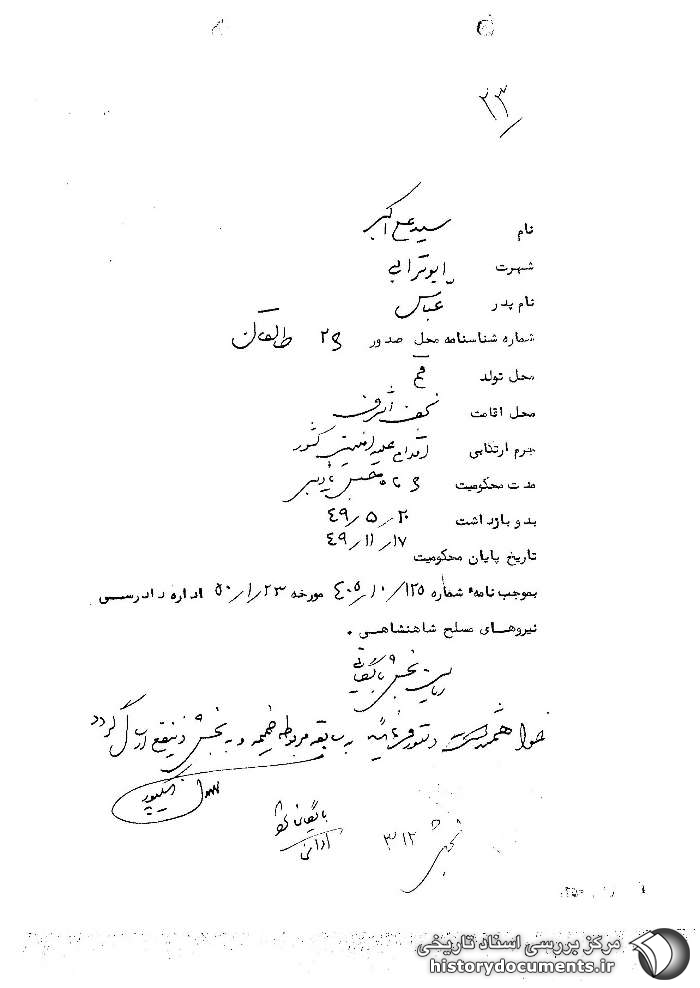 ۲۳
نام سید علی اکبر
شهرت ابوترابی
نام پدر عباس
شماره شناسنامه محل صدور طالقان
محل تولد قم
محل اقامت نجف اشرف
جرم ارتکابی اقدام علیه امنیت کشور
مدت محکومیت ۶ ماه حبس تأدیبی
بدو بازداشت ۴۹/۵/۲۰
تاریخ پایان محکومیت ۴۹/۱۱/۱۷
بموجب نامه شماره ۴۰۵/۱۰/۱۲۵ مورخه ۵۰/۱/۲۳ اداره دادرسی
نیروهای مسلح شاهنشاهی .
ریاست بخش بایگانی
خواهشمند است دستور فرمائید به سابقه مربوطه ضمیمه و به بخش ذینفع ارسال گردد
بخش ۳۱۲
مرکز بررسی اسناد تاریخی
historydocuments.ir